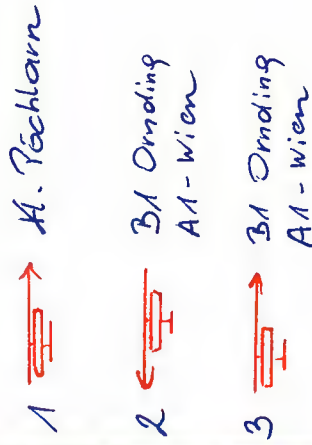 1 Kl. Pöchlarn
2 B1 Ornding
A1 - Wien
3 B1 Ornding
A1 - Wien